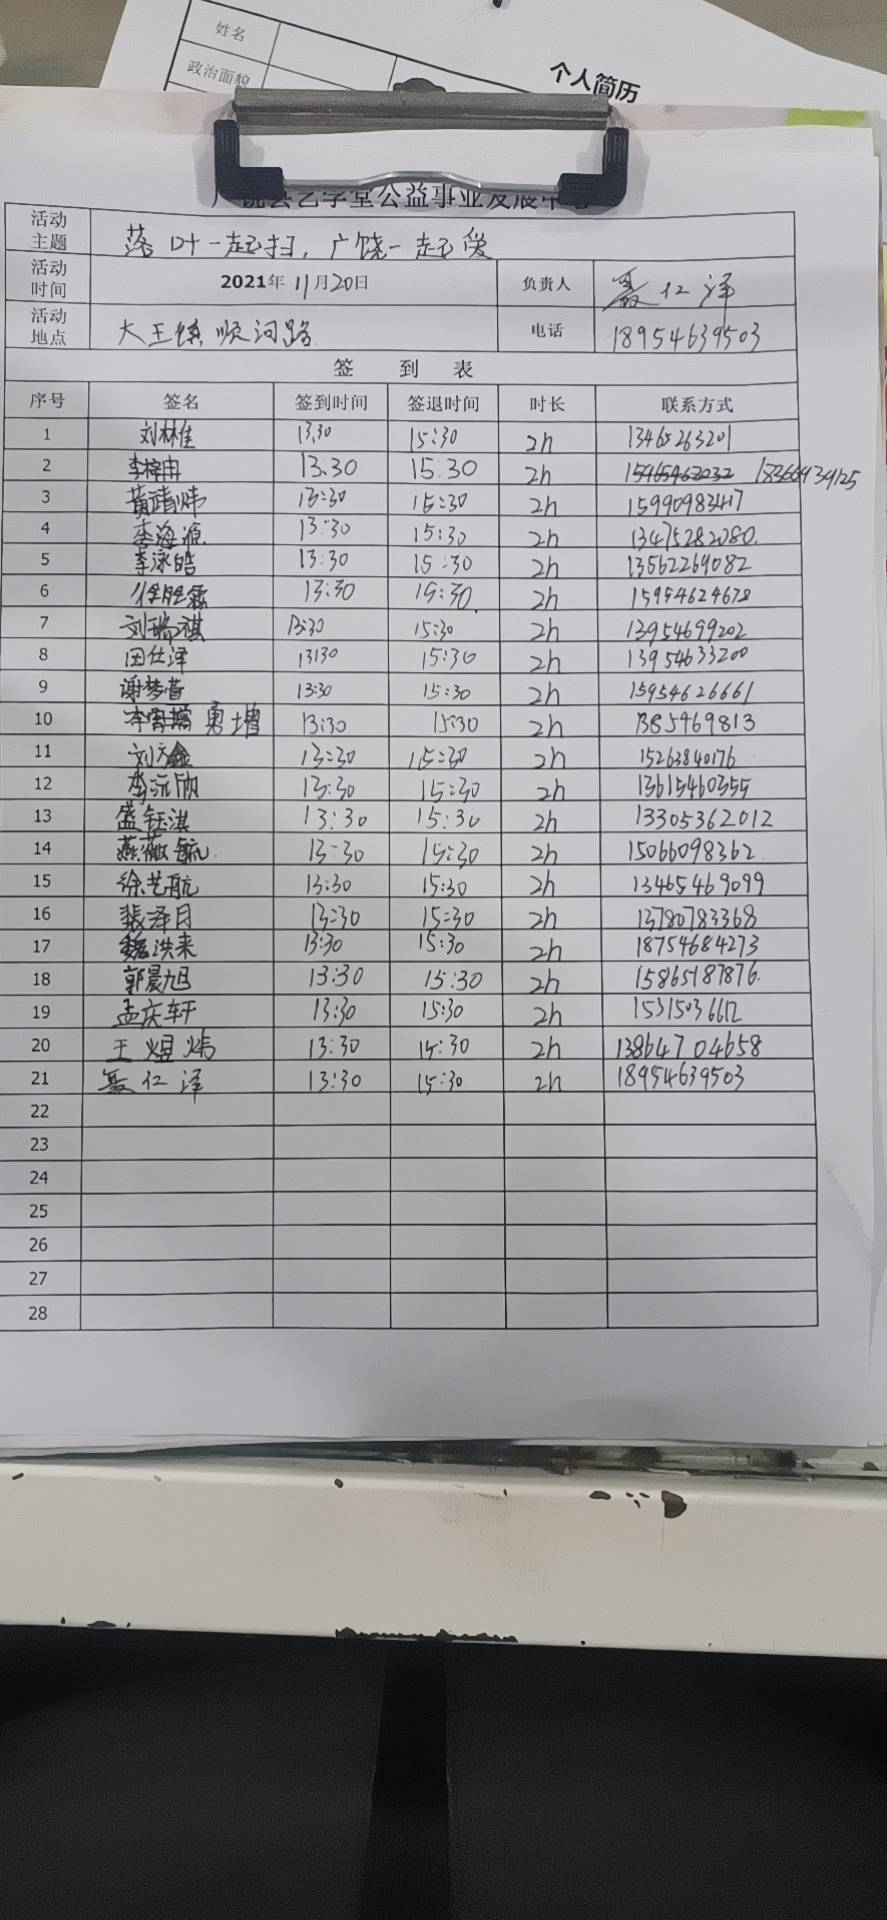 姓名
政治面貌
个人简历
广饶县艺学堂公益事业发展中心
活动主题 落叶一起扫，广饶一起爱
活动时间 2021年11月20日 负责人 聂仁泽
活动地点 大王镇顺河路 电话 18954639503
签到表
序号 签名 签到时间 签退时间 时长 联系方式
1 刘林佳 13.30 15:30 2h 13465263201
2 李梓冉 13.30 15:30 2h 15965462032 18366939125
3 黄靖炜 13:30 15:30 2h 15990983417
4 李海源 13:30 15:30 2h 13475282080.
5 李泳皓 13:30 15:30 2h 13562269082
6 13:30 15:30 2h 15954624678
7 刘瑞祺 13:30 15:30 2h 13954699202
8 田仕泽 13:30 15:30 2h 13954633200
9 谢梦蕾 13:30 15:30 2h 15954626661
10 勇增 13:30 15:30 2h 1385469813
11 刘方鑫 13:30 15:30 2h 15263840176
12 李沅欣 13:30 15:30 2h 13615460355
13 盛钰淇 13:30 15:30 2h 13305362012
14 燕薇毓 13:30 15:30 2h 15066098362
15 徐艺航 13:30 15:30 2h 13465469099
16 裴泽月 13:30 15:30 2h 13780783368
17 魏洪来 13:30 15:30 2h 18754684273
18 郭晨旭 13:30 15:30 2h 15865187876.
19 孟庆轩 13:30 15:30 2h 15315036612
20 王煜炜 13:30 15:30 2h 13864704658
21 聂仁泽 13:30 15:30 2h 18954639503
22
23
24
25
26
27
28